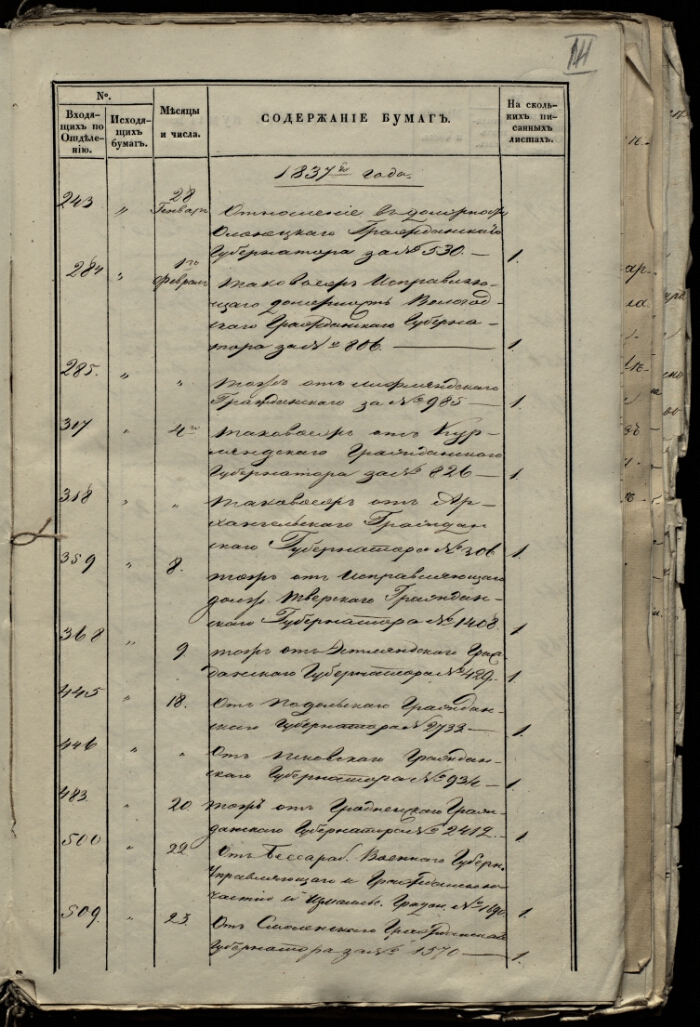 III
№.
Входящихъ по Отдѣленію.
Исходящихъ бумагъ.
Мѣсяцы и числа.
СОДЕРЖАНІЕ БУМАГЪ.
На сколькихъ писанныхъ листахъ.
1837го года.
243 " 28 Генваря Отношеніе въ должност
Олонецкаго Гражданскаго
Губернатора за № 530. — 1.
284 " 1го Февраля Таковоежъ Исправляю-
щаго должность Вологод-
скаго Гражданскаго Губерна-
тора за № 806 — 1.
285. " " тожъ отъ Лифляндскаго
Гражданскаго за № 985 — 1.
317 " 4го таковоежъ отъ Кур-
ляндскаго Гражданскаго
Губернатора за № 826 — 1.
318 " " таковоежъ отъ Ар-
хангельскаго Граждан
скаго Губернатора № 306 1.
359 " 8. тожъ отъ Исправляющаго
долж. Тверскаго Граждан-
скаго Губернатора № 1408. 1.
368 " 9 тожъ отъ Эстляндскаго Граж-
данскаго Губернатора № 429. 1.
445 " 18. Отъ Подольскаго Граждан-
скаго Губернатора № 2733 — 1.
446 " " Отъ Псковскаго Граждан-
скаго Губернатора № 934 — 1.
483 " 20. тожъ отъ Гродненскаго Граж-
данскаго Губернатора № 2412. — 1.
500 " 22 Отъ Бессараб. Военнаго Губерн.
Управляющаго и Гражданскою
частію и Измаильс. Градон. № 1690. 1.
509. " 23. Отъ Смоленскаго Гражданскаго
Губернатора за № 1570 — 1.